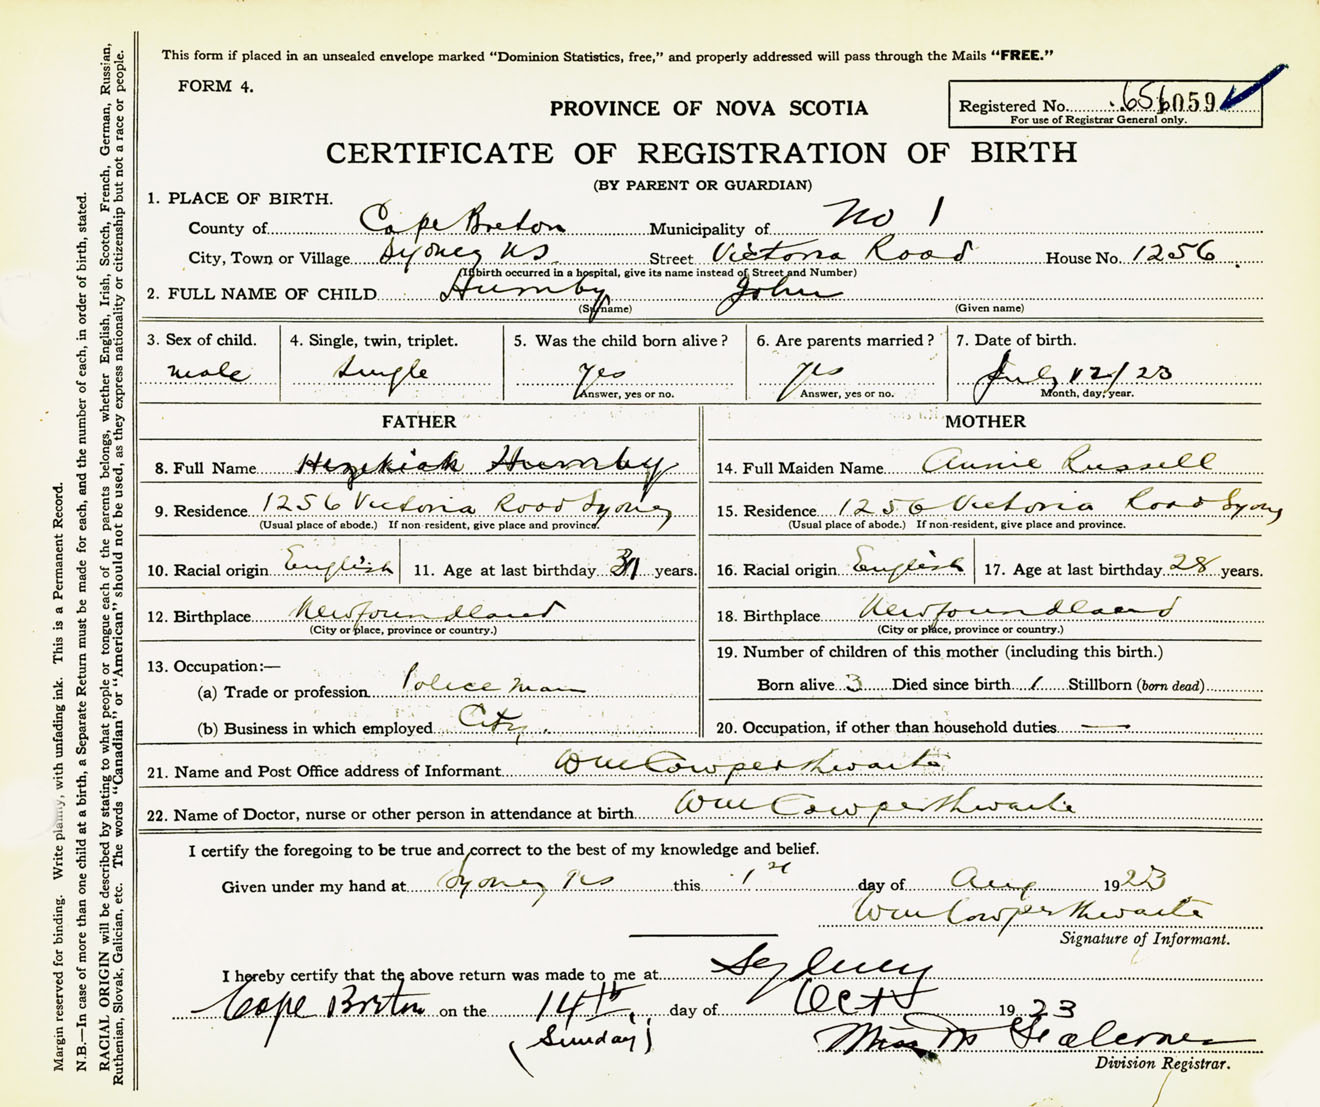 This form if placed in an unsealed envelope marked "Dominion Statistics, free," and properly addressed will pass through the Mails "FREE."
FORM 4.
PROVINCE OF NOVA SCOTIA
Registered No. 059
For use of Registrar General only.
CERTIFICATE OF REGISTRATION OF BIRTH
(BY PARENT OR GUARDIAN)
1. PLACE OF BIRTH.
County of Cape Breton Municipality of No 1
City, Town or Village Sydney NS Street Victoria Road House No. 1256
(If birth occurred in a hospital, give its name instead of Street and Number)
2. FULL NAME OF CHILD Hurnby John
(Surname) (Given name)
3. Sex of child. 4. Single, twin, triplet. 5. Was the child born alive? 6. Are parents married? 7. Date of birth.
male single yes yes July 12/23
Answer, yes or no. Answer, yes or no. Month, day, year.
FATHER MOTHER
8. Full Name Hezekiah Hurnby 14. Full Maiden Name Annie Russell
9. Residence 1256 Victoria Road Sydney 15. Residence 1256 Victoria Road Sydney
(Usual place of abode.) If non-resident, give place and province. (Usual place of abode.) If non-resident, give place and province.
10. Racial origin English 11. Age at last birthday 31 years. 16. Racial origin English 17. Age at last birthday 28 years.
12. Birthplace Newfoundland 18. Birthplace Newfoundland
(City or place, province or country.) (City or place, province or country.)
13. Occupation:— 19. Number of children of this mother (including this birth.)
(a) Trade or profession Police man Born alive 3 Died since birth 1 Stillborn (born dead)
(b) Business in which employed City. 20. Occupation, if other than household duties —
21. Name and Post Office address of Informant Wm Cowperthwaite
22. Name of Doctor, nurse or other person in attendance at birth Wm Cowperthwaite
I certify the foregoing to be true and correct to the best of my knowledge and belief.
Given under my hand at Sydney NS this 1st day of Aug 1923
Wm Cowperthwaite
Signature of Informant.
I hereby certify that the above return was made to me at Sydney
Cape Breton on the 14th day of Oct 1923
(Sunday)
Miss M
Division Registrar.
Margin reserved for binding. Write plainly, with unfading ink. This is a Permanent Record.
N.B.—In case of more than one child at a birth, a Separate Return must be made for each, and the number of each, in order of birth, stated.
RACIAL ORIGIN will be described by stating to what people or tongue each of the parents belongs, whether English, Irish, Scotch, French, German, Russian,
Ruthenian, Slovak, Galician, etc. The words "Canadian" or "American" should not be used, as they express nationality or citizenship but not a race or people.